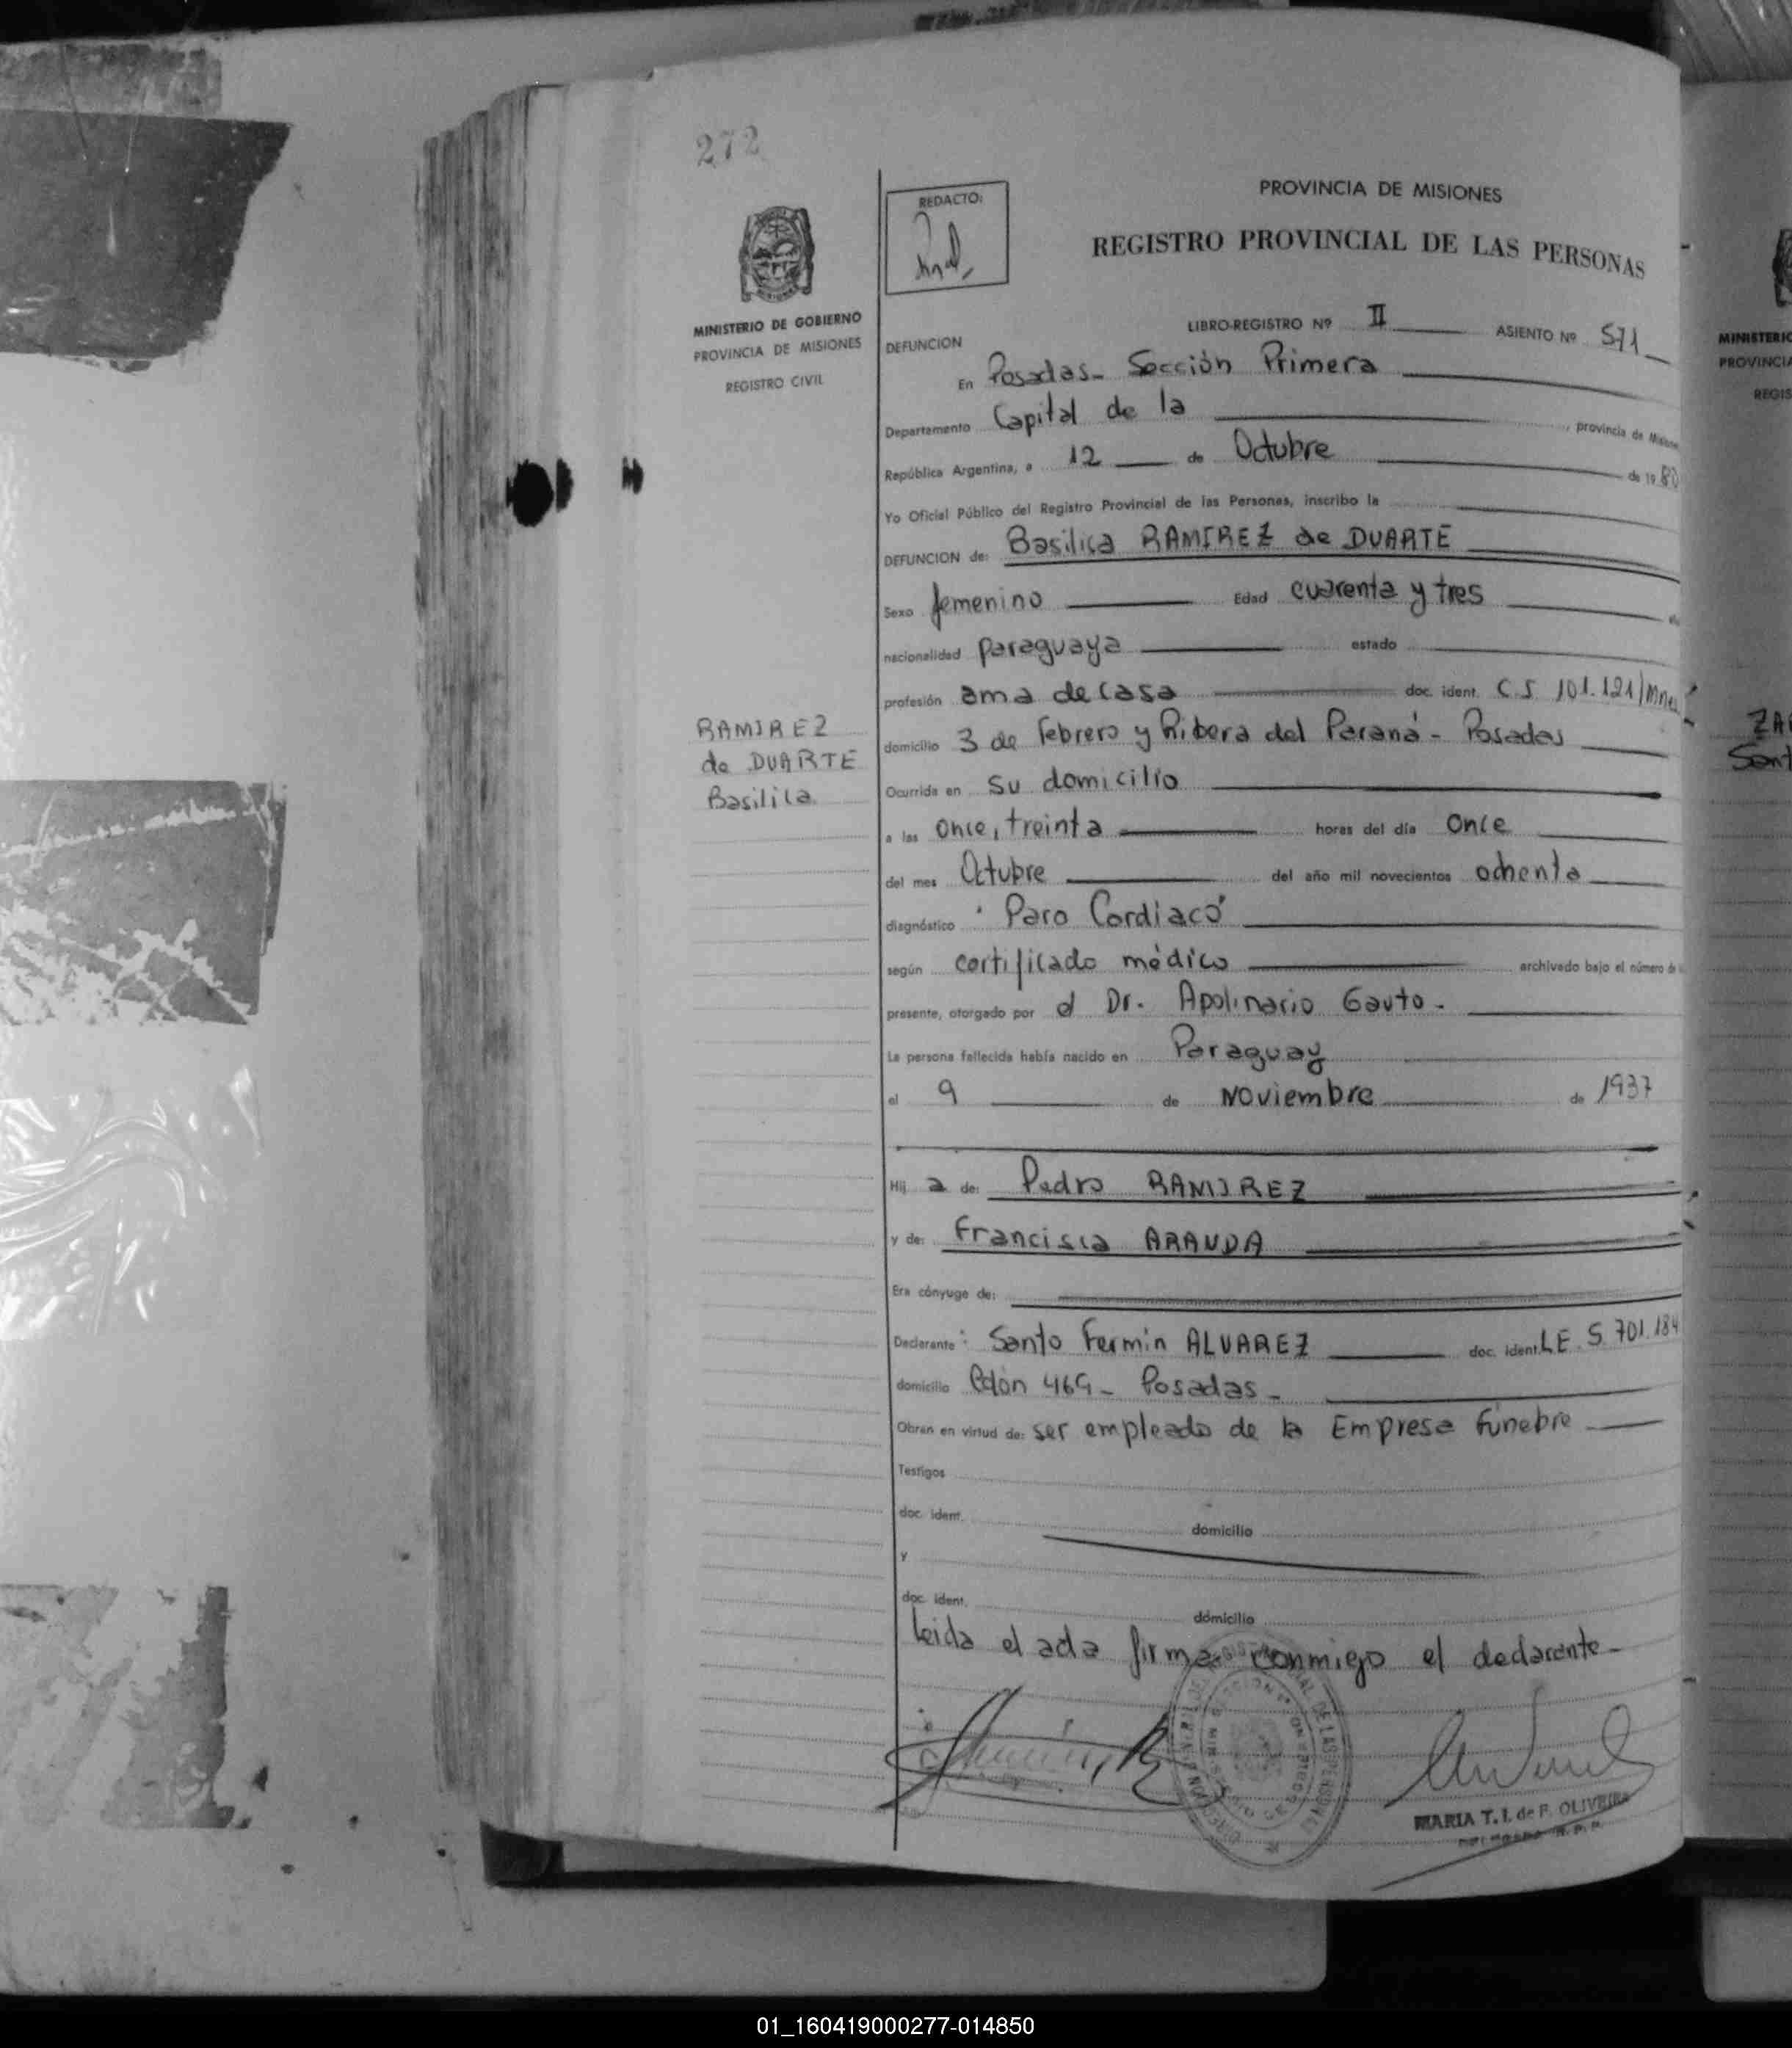 272
REDACTO:
PROVINCIA DE MISIONES
REGISTRO PROVINCIAL DE LAS PERSONAS
MINISTERIO DE GOBIERNO
PROVINCIA DE MISIONES
REGISTRO CIVIL
LIBRO-REGISTRO Nº II ASIENTO Nº 571
DEFUNCION
En Posadas- Sección Primera
Departamento Capital de la , provincia de Misiones
República Argentina, a 12 de Octubre de 1980
Yo Oficial Público del Registro Provincial de las Personas, inscribo la
DEFUNCION de: Basilica RAMIREZ de DUARTE
Sexo femenino Edad cuarenta y tres
nacionalidad paraguaya estado
profesión ama de casa doc. ident. C.I. 101.121/Mnes
RAMIREZ
de DUARTE
Basilica
domicilio 3 de Febrero y Ribera del Paraná - Posadas
Ocurrida en su domicilio
a las once, treinta horas del día once
del mes Octubre del año mil novecientos ochenta
diagnóstico "Paro Cardiaco"
según certificado médico archivado bajo el número de
presente, otorgado por el Dr. Apolinario Gauto.
La persona fallecida había nacido en Paraguay
el 9 de Noviembre de 1937
Hij a de: Pedro RAMIREZ
y de: Francisca ARANDA
Era cónyuge de:
Declarante: Santo Fermín ALVAREZ doc. ident. L.E. 5.701.184
domicilio Colón 469- Posadas-
Obran en virtud de: ser empleado de la Empresa Fúnebre
Testigos
doc. ident. domicilio
y
doc. ident. domicilio
Leida el acta firma conmigo el declarante-
MARIA T. I. de F. OLIVEIRA
ZA
Sant
MINISTERIO
PROVINCIA
REGIS
01_160419000277-014850